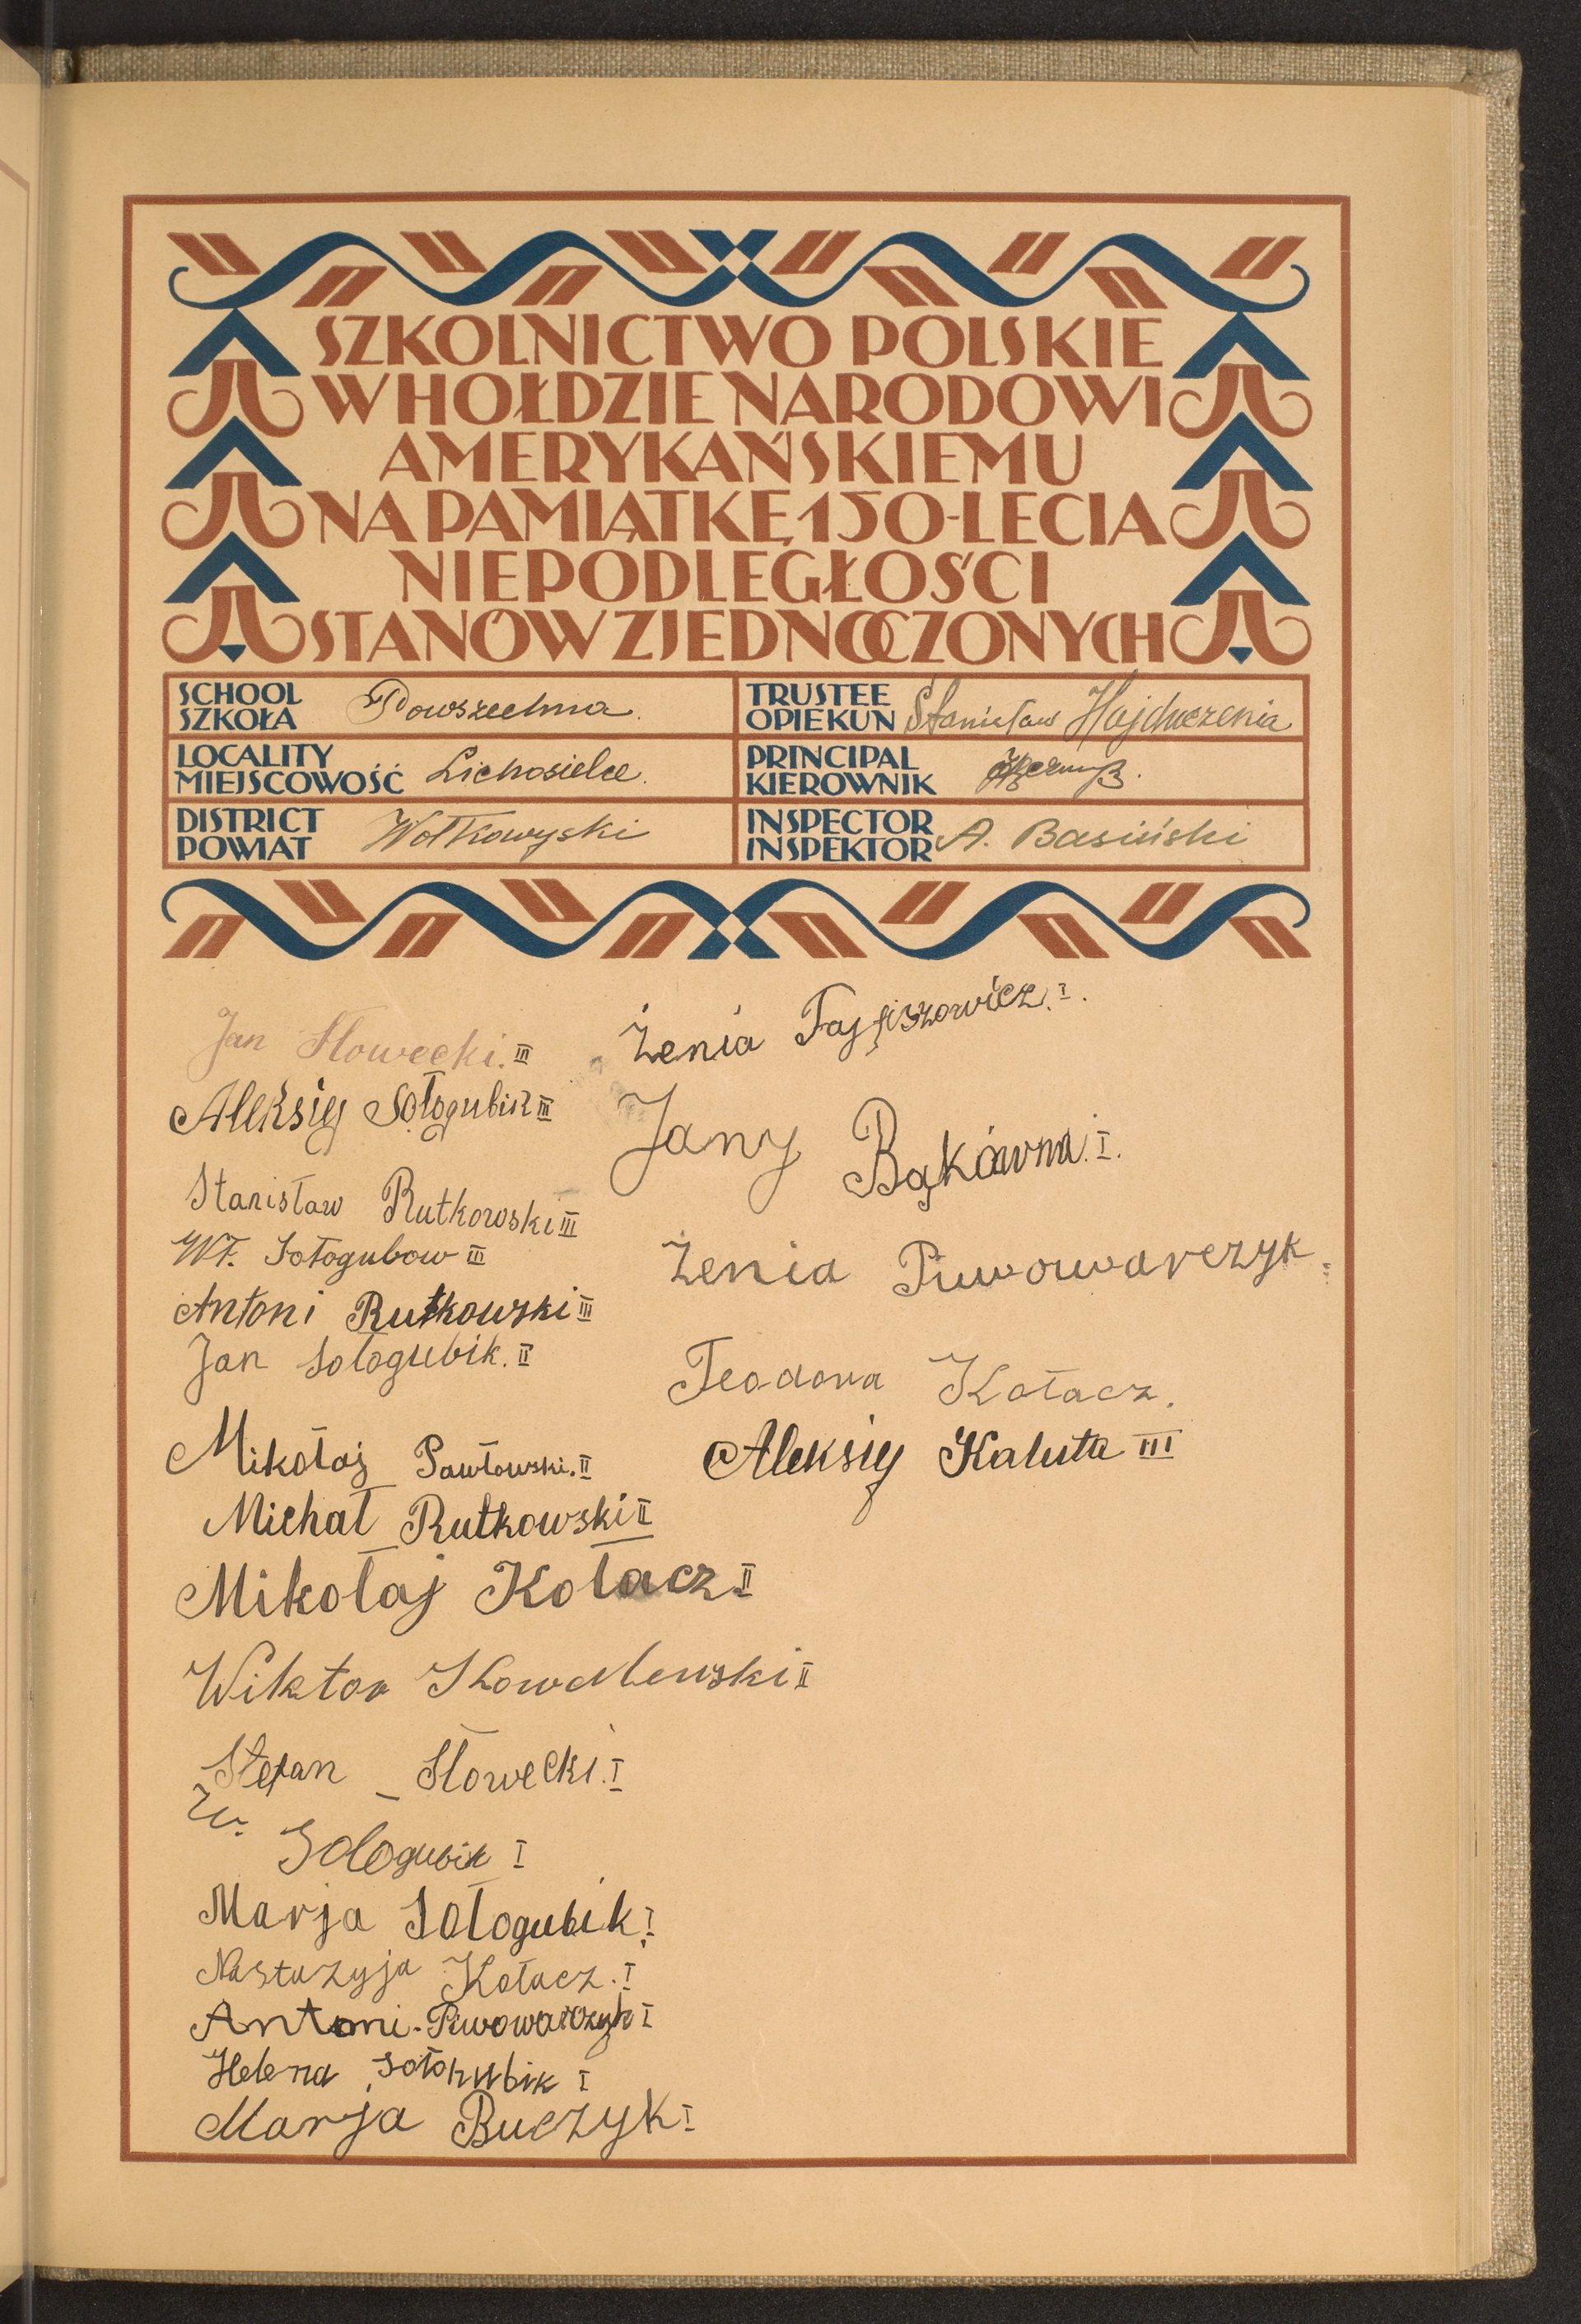 SZKOLNICTWO POLSKIE
W HOŁDZIE NARODOWI
AMERYKAŃSKIEMU
NA PAMIĄTKĘ 150-LECIA
NIEPODLEGŁOŚCI
STANÓW ZJEDNOCZONYCH
SCHOOL
SZKOŁA
Powszechna.
TRUSTEE
OPIEKUN
Stanisław Hajduczenia
LOCALITY
MIEJSCOWOŚĆ
Lichosielce.
PRINCIPAL
KIEROWNIK
DISTRICT
POWIAT
Wołkowyski
INSPECTOR
INSPEKTOR
A. Basiński
Jan Słowecki. III
Aleksiej Sołogubik III
Stanisław Rutkowski III
Wł. Sołogubow III
Antoni Rutkowski III
Jan Sołogubik. II
Mikołaj Pawłowski. II
Michał Rutkowski II
Mikołaj Kołacz II
Wiktor Kowalewski II
Stefan Słowecki. I
W. Sologubik I
Marja Sołogubik I
Nastazyja Kołacz. I
Antoni Piwowarczyk I
Helena Sołohubik I
Marja Buczyk I
Żenia I.
Jany Bąkówna. I.
Żenia Piwowarczyk
Teodora Kołacz.
Aleksiej Kaluta III